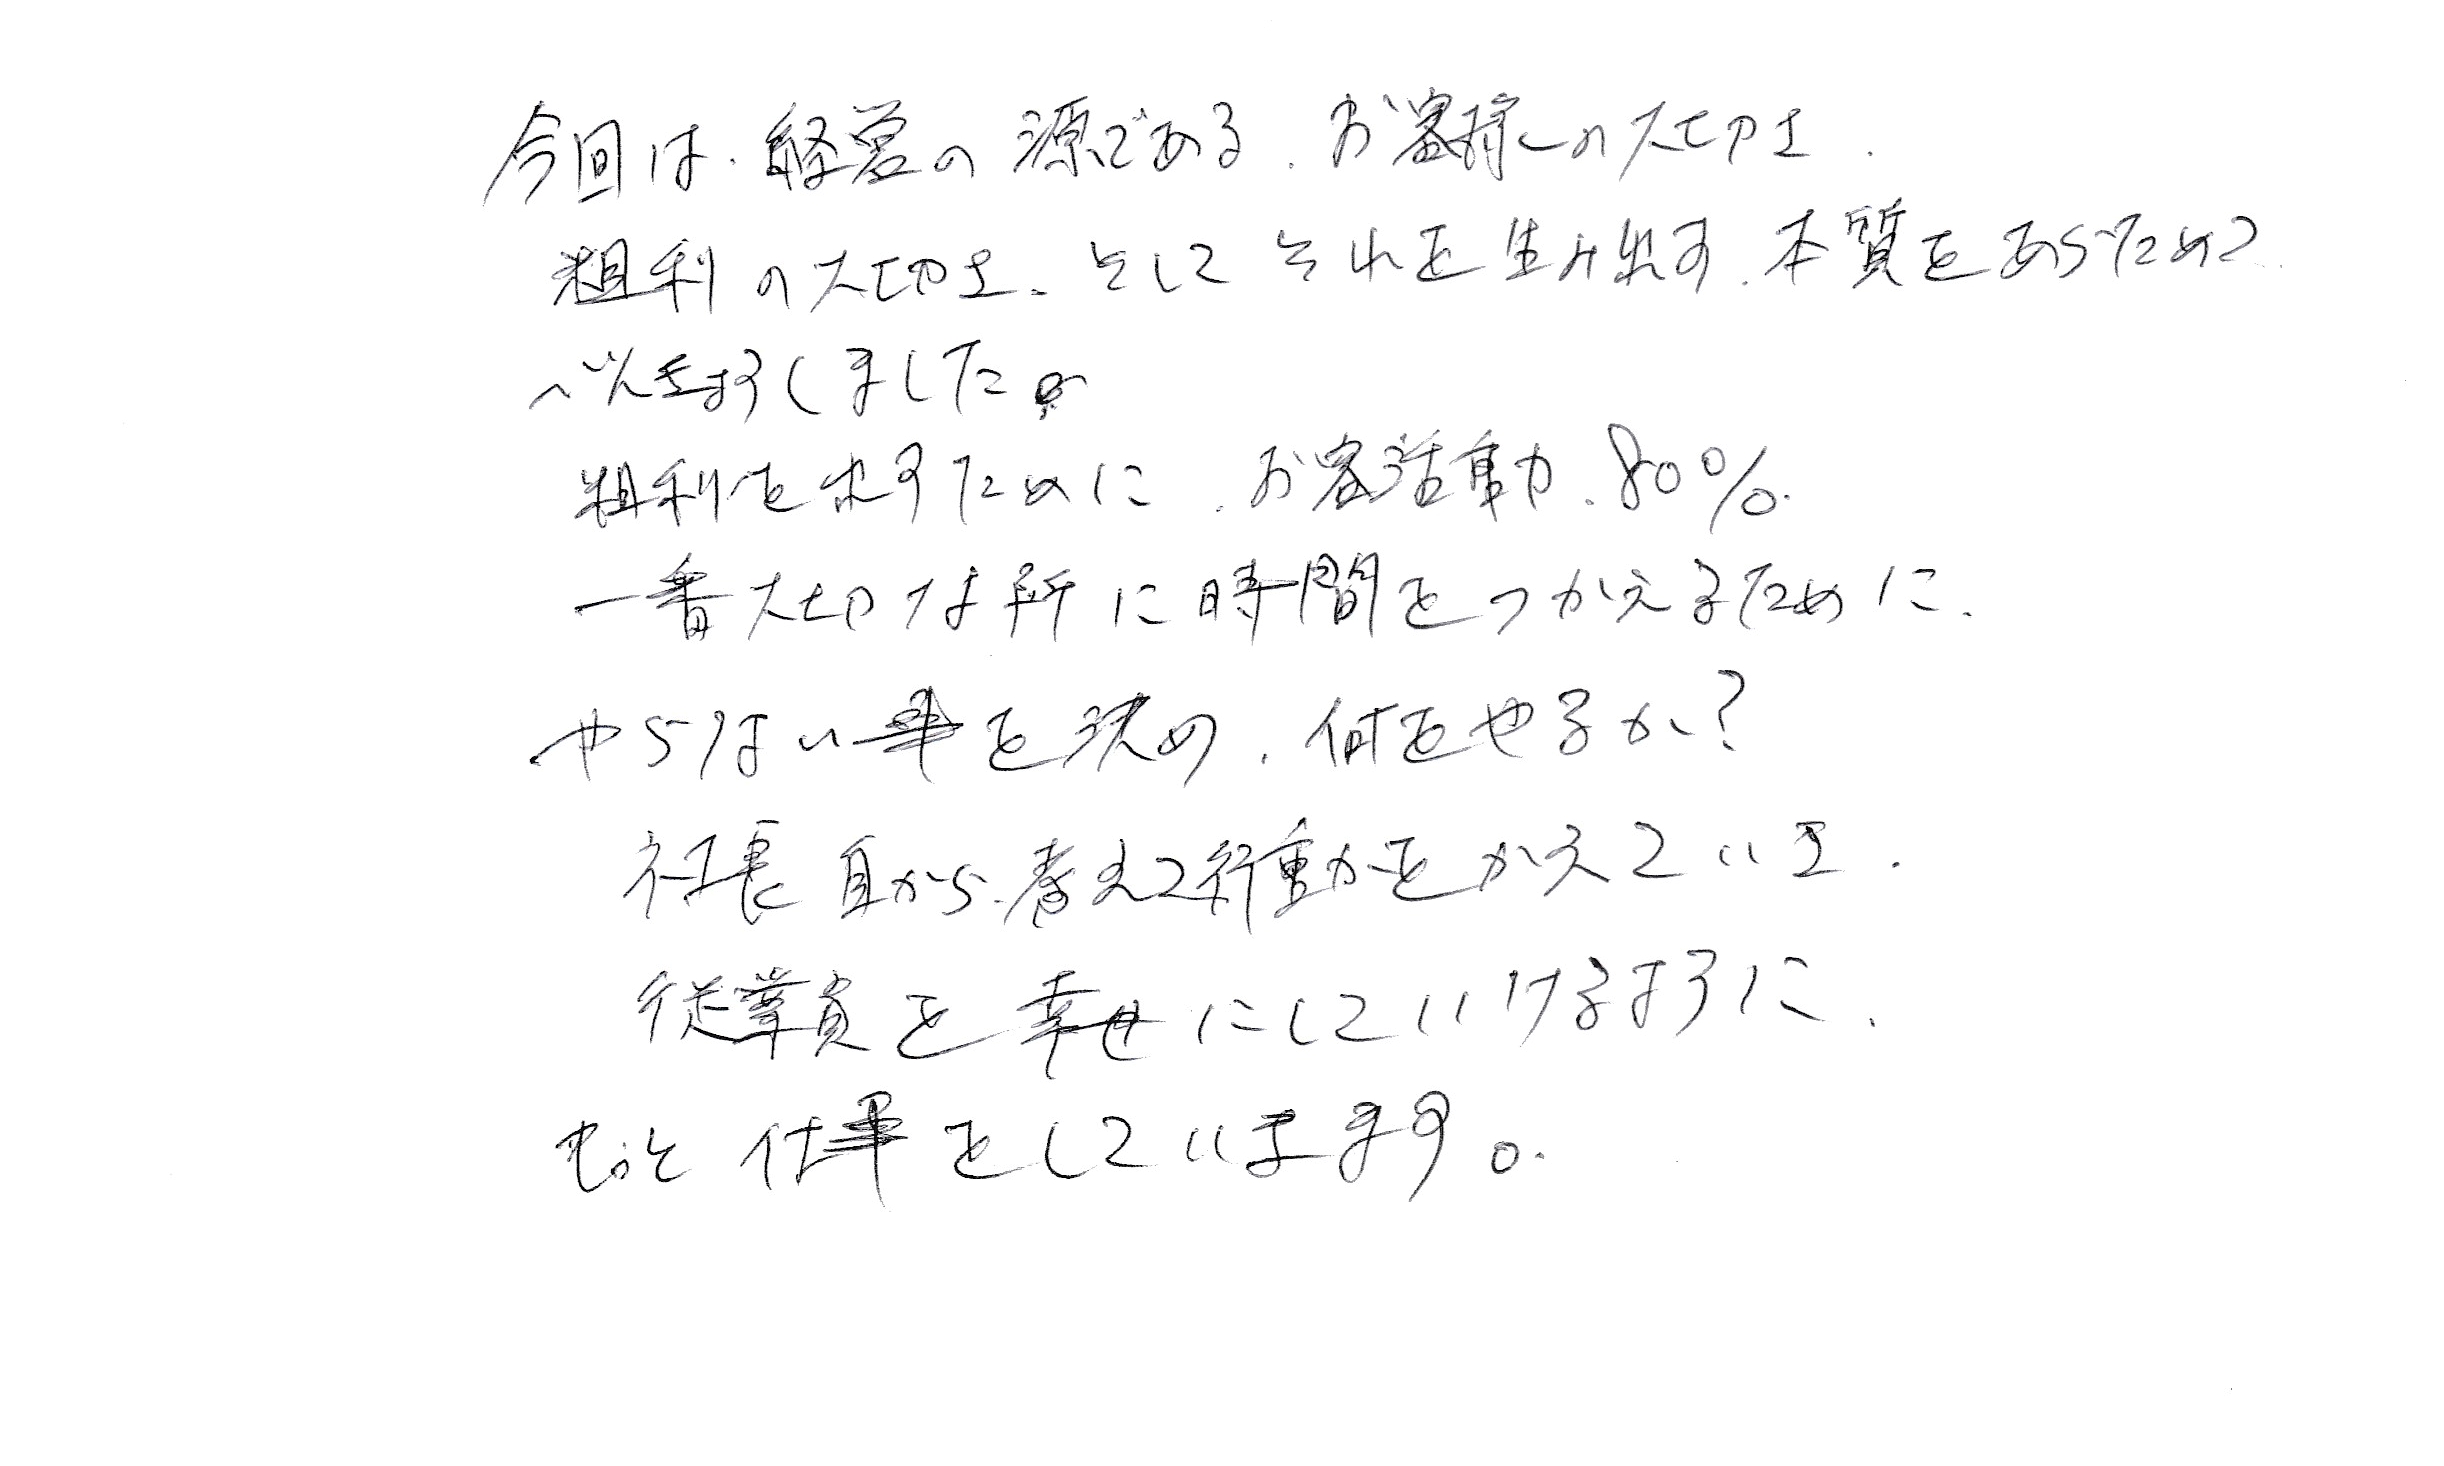 今回は、経営の源である、お客様の大切さ、
粗利の大切さ、そしてそれを生み出す、本質をあらためて
べんきょうしました。
粗利を出すために、お客活動、80%
一番大切な所に時間をつかえるために、
やらない事を決め、何をやるか?
社長自から、考えて行動をかえていき、
従業員を幸せにしていけるように、
もっと仕事をしていきます。